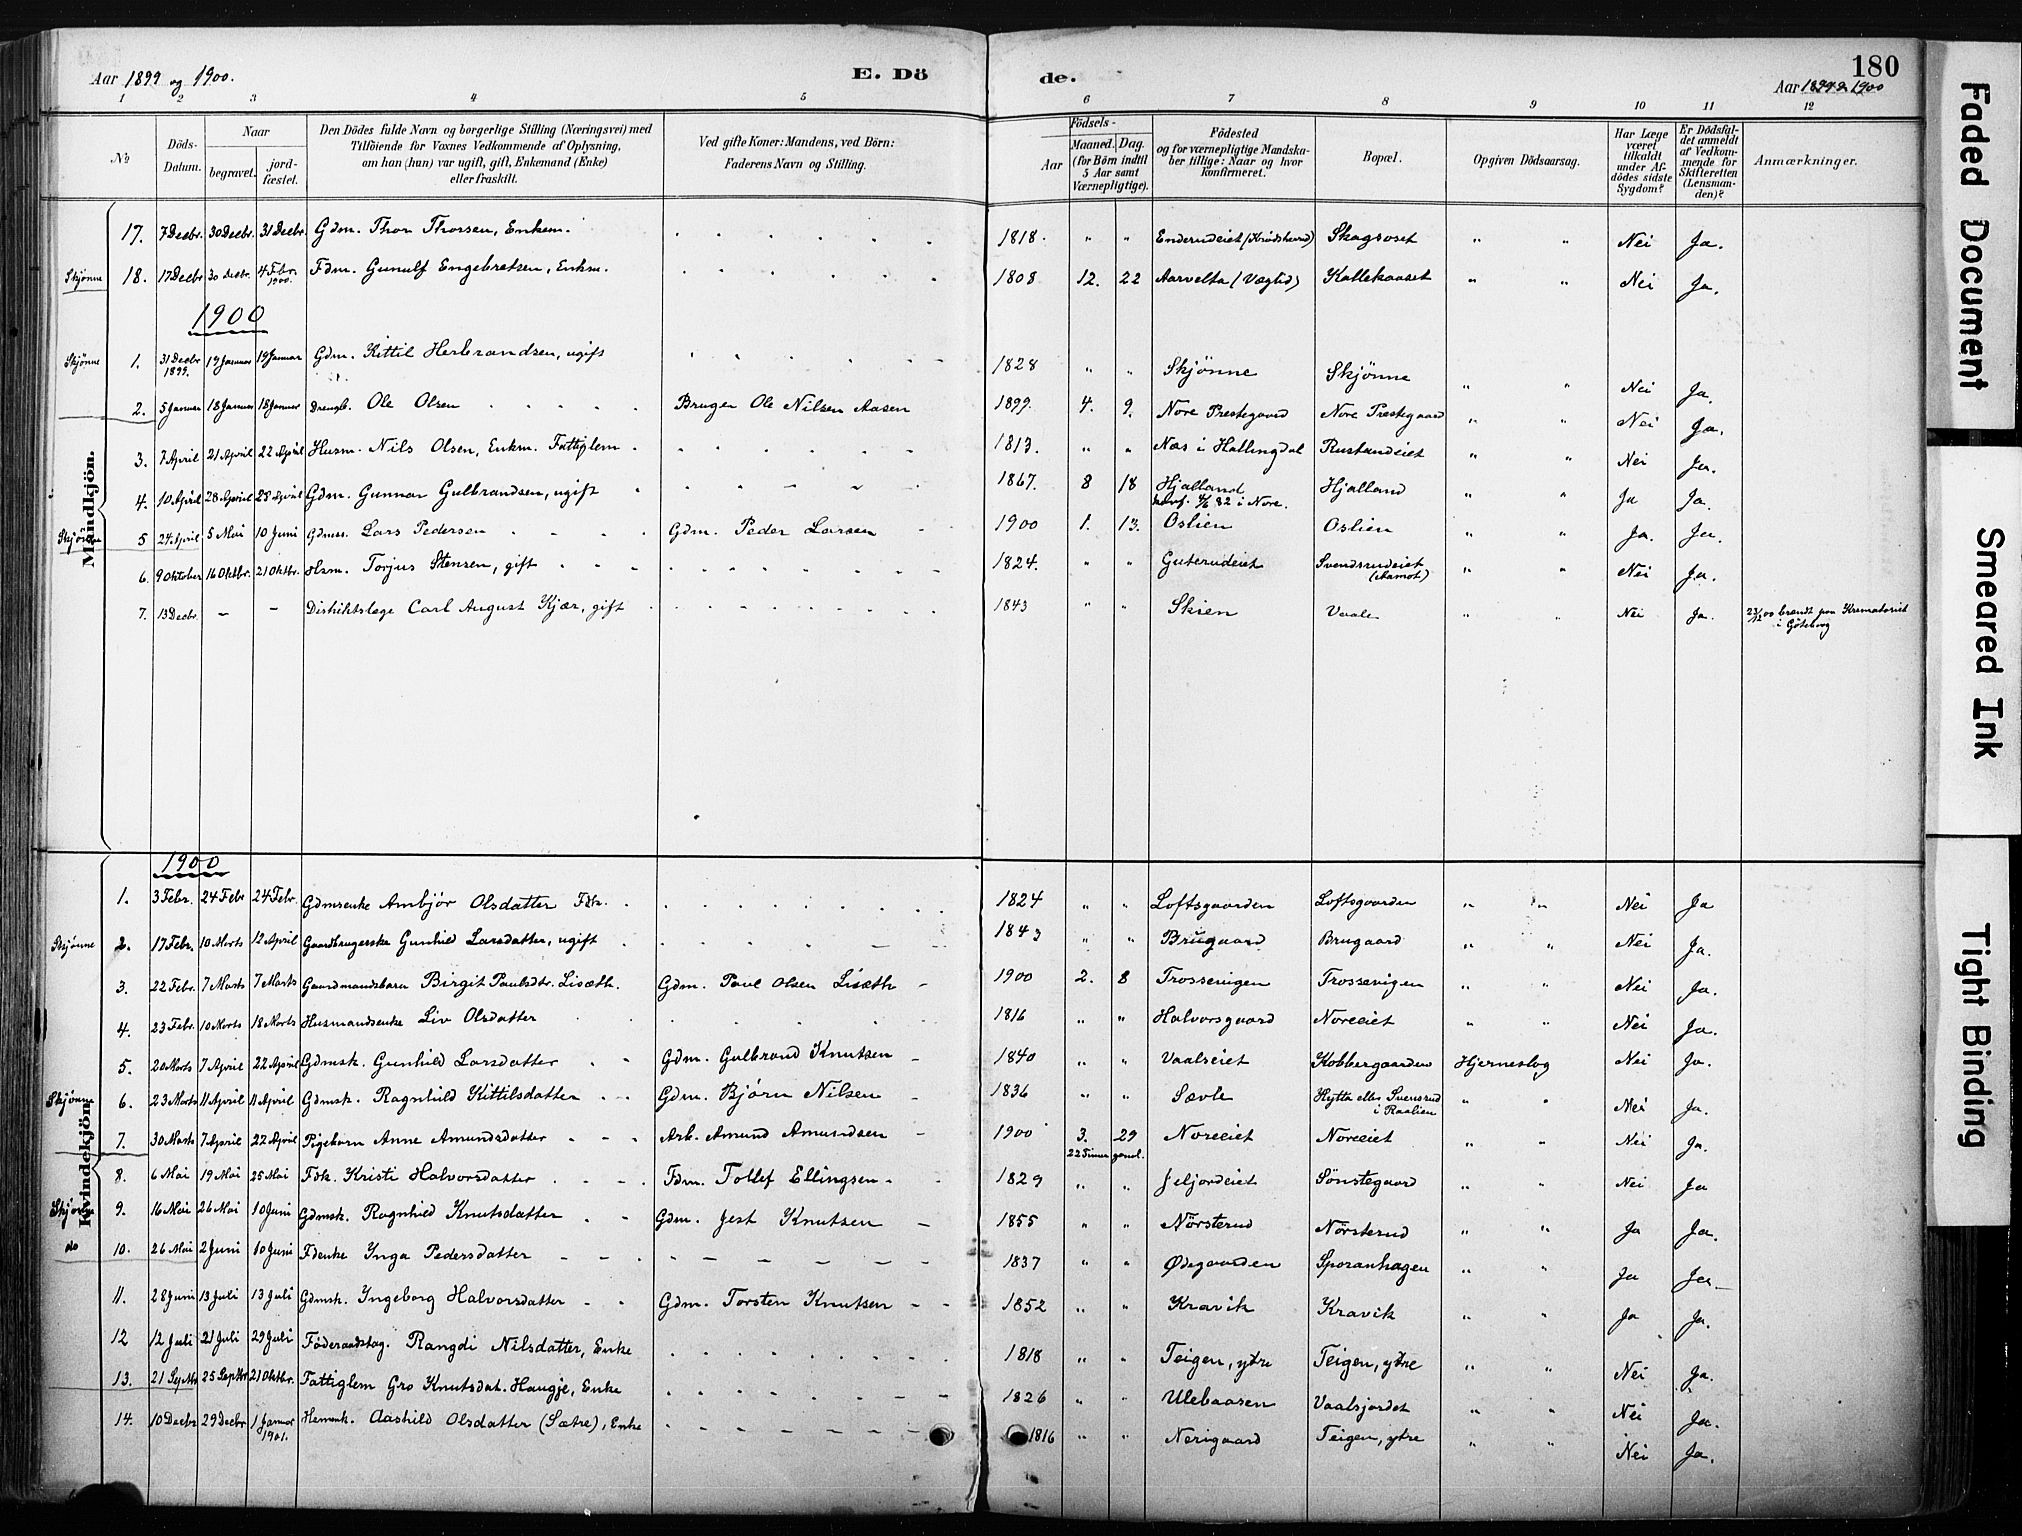 Aar 1899 og 1900.
E. Dö
de.
180
Aar 1899 & 1900
1 2 3 4 5 6 7 8 9 10 11 12
No
Döds-Datum.
Naar
begravet.
jord-fæstet.
Den Dödes fulde Navn og borgerlige Stilling (Næringsvei) med
Tilföiende for Voxnes Vedkommende af Oplysning,
om han (hun) var ugift, gift, Enkemand (Enke)
eller fraskilt.
Ved gifte Koner: Mandens, ved Börn:
Faderens Navn og Stilling.
Födsels-
Aar
Maaned. Dag.
(for Börn indtil
5 Aar samt
Værnepligtige).
Födested
og for værnepligtige Mandska-
ber tillige: Naar og hvor
konfirmeret.
Bopæl.
Opgiven Dödsaarsag.
Har Læge
været
tilkaldt
under Af-
dödes sidste
Sygdom?
Er Dödsfal-
det anmeldt
af Vedkom-
mende for
Skifteretten
(Lensman-
den)?
Anmærkninger.
17. 7 Decbr. 30 Decbr. 31 Decbr. Gdm. Thor Thorsen, Enkem. 1818. " " Enderudeiet (Krødsherad) Skagsoset " " Nei Ja.
Skjønne 18. 17 Decbr 30 Decbr. 4 Febr. 1900. Fdm. Gunulf Engebretsen, Enkm. 1808 12. 22 Aarvelta (Væglid) Kallekaaset " " Nei Ja.
1900
Skjønne 1. 31 Decbr 1899. 19 Januar 19 Januar Gdm. Kittil Herbrandsen, ugift 1828 " " Skjønne Skjønne " " Nei Ja.
2. 5 Januar 18 Januar 18 Januar Drengb. Ole Olsen Bruger Ole Nilsen Aasen 1899. 4. 9. Nore Prestegaard Nore Prestegaard " " Nei Ja.
3. 7 April 21 April 22 April Husm. Nils Olsen, Enkm. Fattiglem 1813. " " Næs i Hallingdal Rustandeiet " " Nei Ja.
4. 10 April 28 April 28 April Gdm. Gunnar Gulbrandsen, ugift 1867. 8 18 Hjalland Hjalland " " Ja Ja.
82 i Nore.
Skjønne 5 24 April 5 Mai 10 Juni Gdmss. Lars Pedersen Gdm. Peder Larsen 1900 1. 13. Oslien Oslien " " Ja. Ja.
6. 9 Oktober 16 Oktbr. 21 Oktbr. Hsm. Torjus Stensen, gift 1824. " " Guterudeiet Svendsrudeiet (Aamot) " " Nei Ja.
7. 13 Decbr. – – Distriktslæge Carl August Kjær, gift 1843 " " Skien Vaale " " Nei Ja. 23/12 00 brændt paa Krematoriet
i Göteborg
Mandkjön.
1900
1. 3 Febr. 24 Febr 24 Febr. Gdmsenke Ambjør Olsdatter Fdk. 1824 " " Loftsgaarden Loftsgaarden " " Nei Ja
Skjønne 2. 17 Febr. 10 Marts 12 April Gaardbrugerske Gunhild Larsdatter, ugift 1843 " " Brugaard Brugaard " " Nei Ja.
3. 22 Febr. 7 Marts 7 Marts Gaardmandsbarn Birgit Paulsdtr. Lisæth. Gdm. Paul Olsen Lisæth 1900 2. 8 Trossevigen Trossevigen " " Nei Ja.
4. 23 Febr. 10 Marts 18 Marts Husmandsenke Liv Olsdatter 1816 " " Halvorsgaard Noreeiet " " Nei Ja.
5. 20 Marts 7 April 22 April Gdmsk. Gunhild Larsdatter Gdm. Gulbrand Knutsen 1840 " " Vaalseiet Kobbergaarden Hjerneslag Nei Ja.
Skjønne 6. 23 Marts 11 April 11 April Gdmsk. Ragnhild Kittilsdatter Gdm. Bjørn Nilsen 1836 " " Sævle Hytta eller Svensrud i Raalien " " Nei Ja.
7. 30 Marts 7 April 22 April Pigebarn Anne Amundsdatter Arb. Amund Amundsen 1900 3. 29 Noreeiet Noreeiet " " Nei Ja.
22 Timer gaml.
8. 6 Mai 19 Mai 25 Mai Fdk. Kristi Halvorsdatter Fdm. Tollef Ellingsen 1829 " " Jeljordeiet Sønstegaard " " Nei Ja
Skjønne 9. 16 Mai 26 Mai 10 Juni Gdmsk. Ragnhild Knutsdatter Gdm. Jest Knutsen 1855 " " Nørsterud Nørsterud " " Ja Ja.
do 10. 26 Mai 2 Juni 10 Juni Fdenke Inga Pedersdatter 1837 " " Ødegaarden Sporanhagen " " Ja Ja
11. 28 Juni 13 Juli 13 Juli Gdmsk. Ingeborg Halvorsdatter Gdm. Torsten Knutsen 1852 " " Kravik Kravik " " Ja Ja.
12 12 Juli 21 Juli 29 Juli Föderaadstag. Rangdi Nilsdatter, Enke 1818 " " Teigen, ytre Teigen, ytre " " Nei Ja.
13. 21 Septbr 25 Septbr 21 Oktbr. Fattiglem Gro Knutsdat. Haugje, Enke 1826 " " Ulebaasen Vaalsjordet " " Nei Ja.
14. 10 Decbr 29 Decbr 1 Januar 1901. Aashild Olsdatter (Sætre), Enke 1816 " " Nerigaard Teigen, ytre " " Nei Ja.
Kvindekjön.
Faded Document
Smeared Ink
Tight Binding